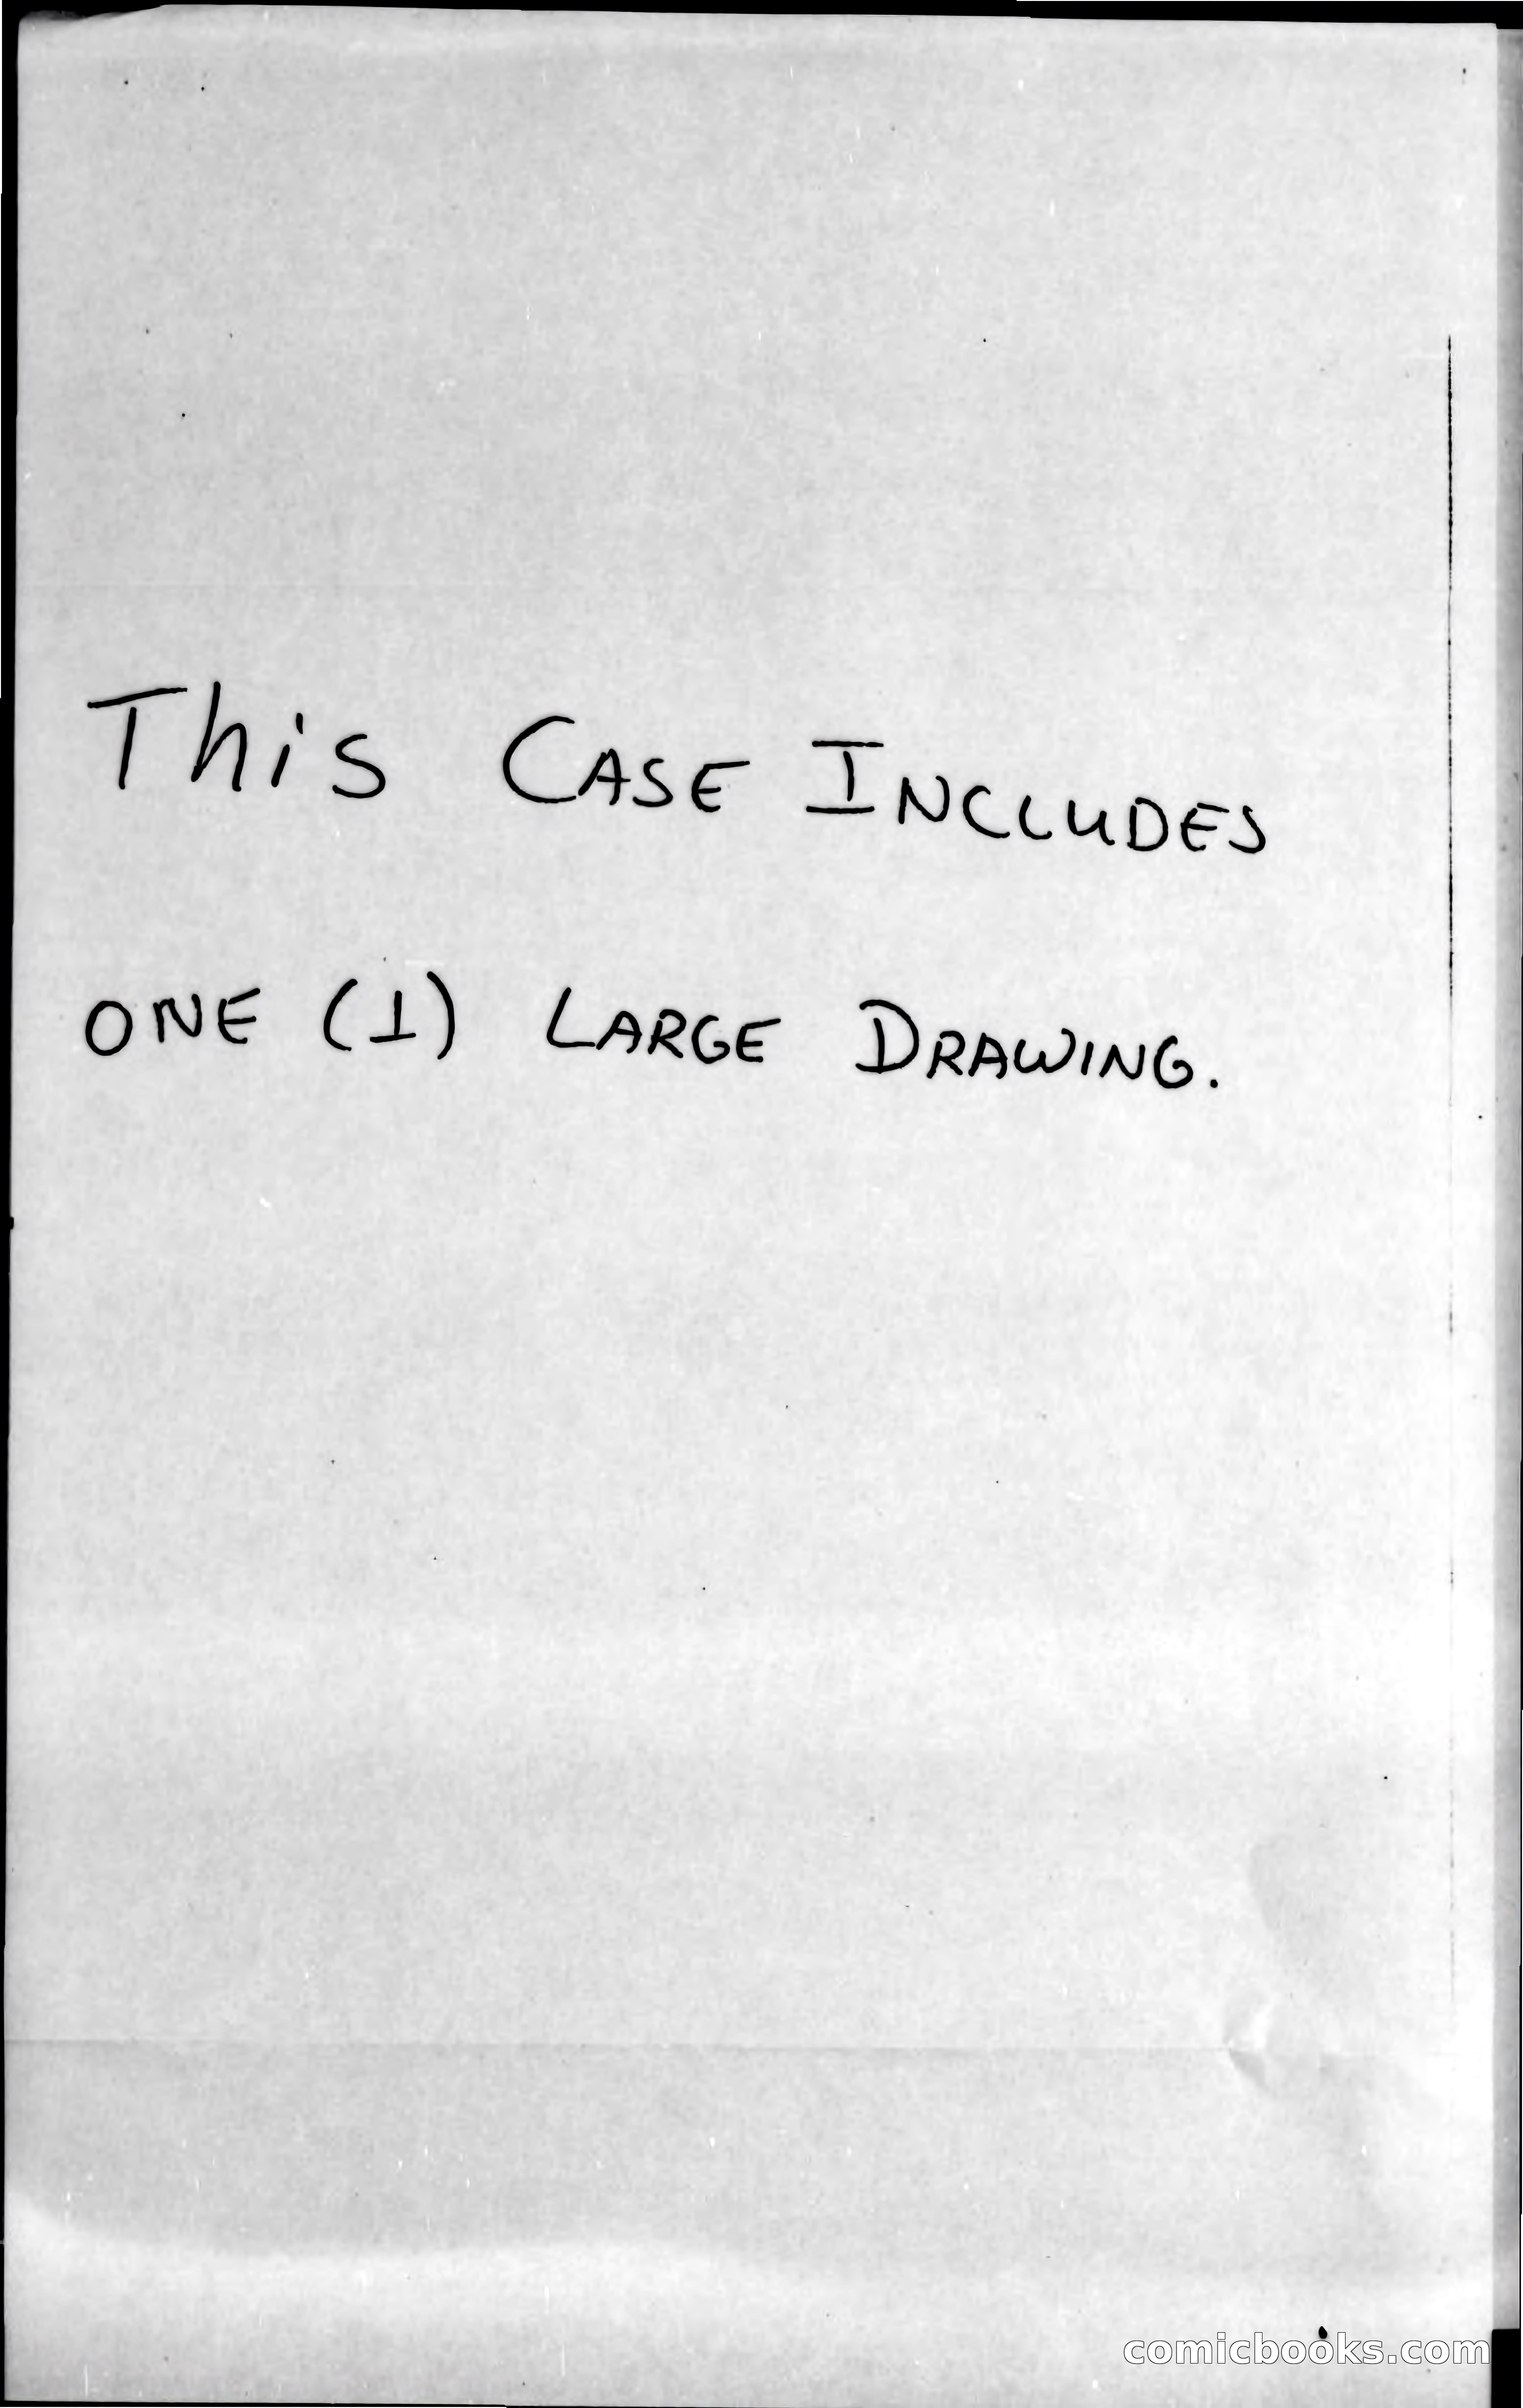 This CASE INCLUDES
ONE (1) LARGE DRAWING.
comicbooks.com